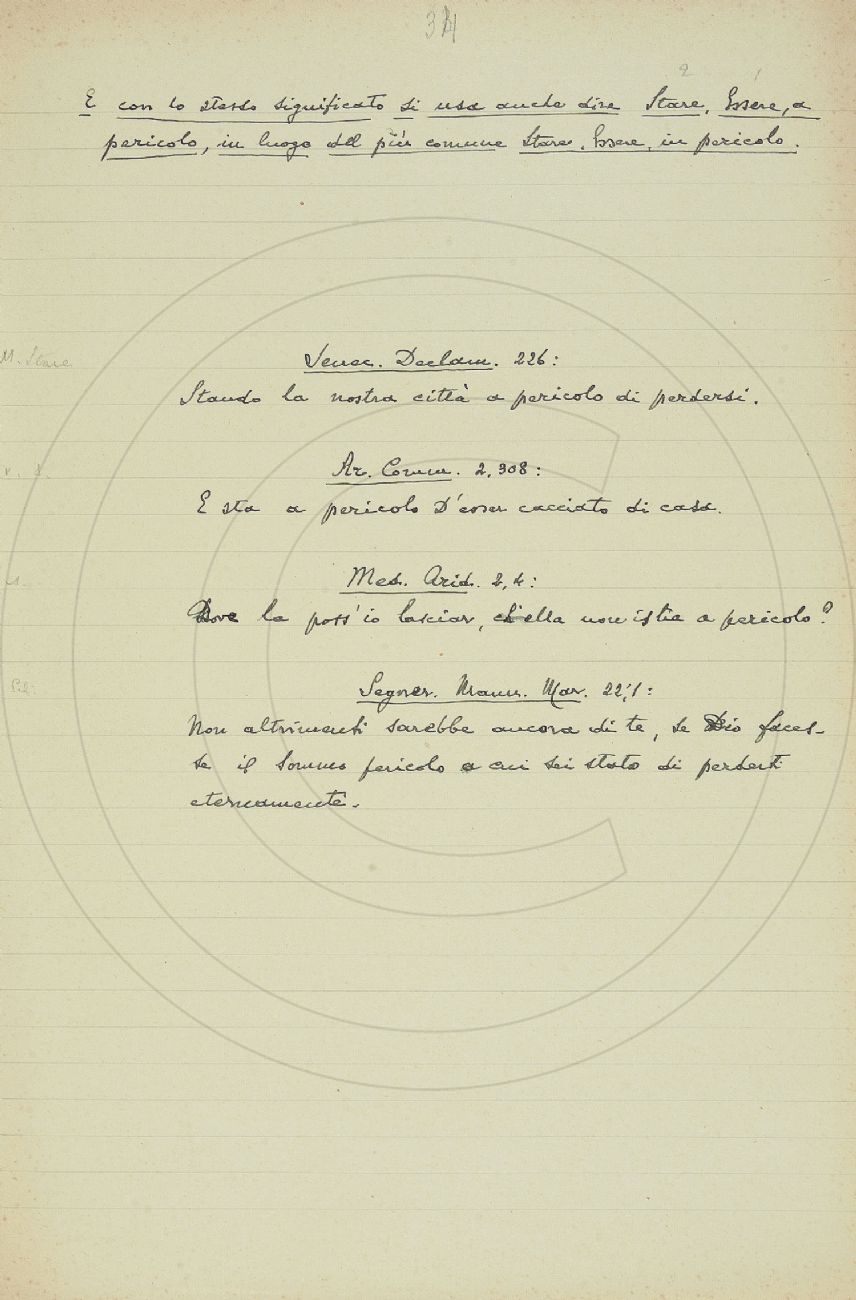 34
2 1
E con lo stesso significato si usa anche dire Stare, Essere, a
pericolo, in luogo del più comune Stare, Essere, in pericolo.
M. Stare
Senec. Declam. 226:
Stando la nostra città a pericolo di perdersi.
v. s.
Ar. Comm. 2, 308:
E sta a pericolo D'esser cacciato di casa.
Med. Arid. 2, 4:
Dove la poss'io lasciar, ch'ella non istia a pericolo?
Segner. Mann. Mar. 22, 1:
Non altrimenti sarebbe ancora di te, se Dio faces-
se il sommo pericolo a cui sei stato di perderti
eternamente.